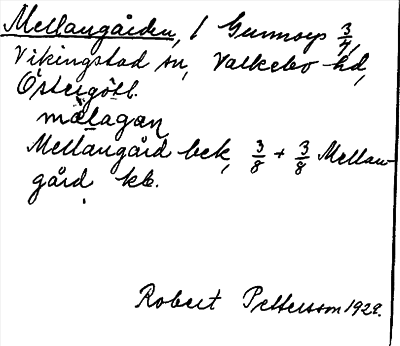 Mellangården, / Gunnorps 3/4,
Vikingstad sn, Valkebo hd,
Östergötl.
mälagan
Mellangård bek, 3/8 + 3/8 Mellan-
gård kb.
Robert Pettersson 1929.